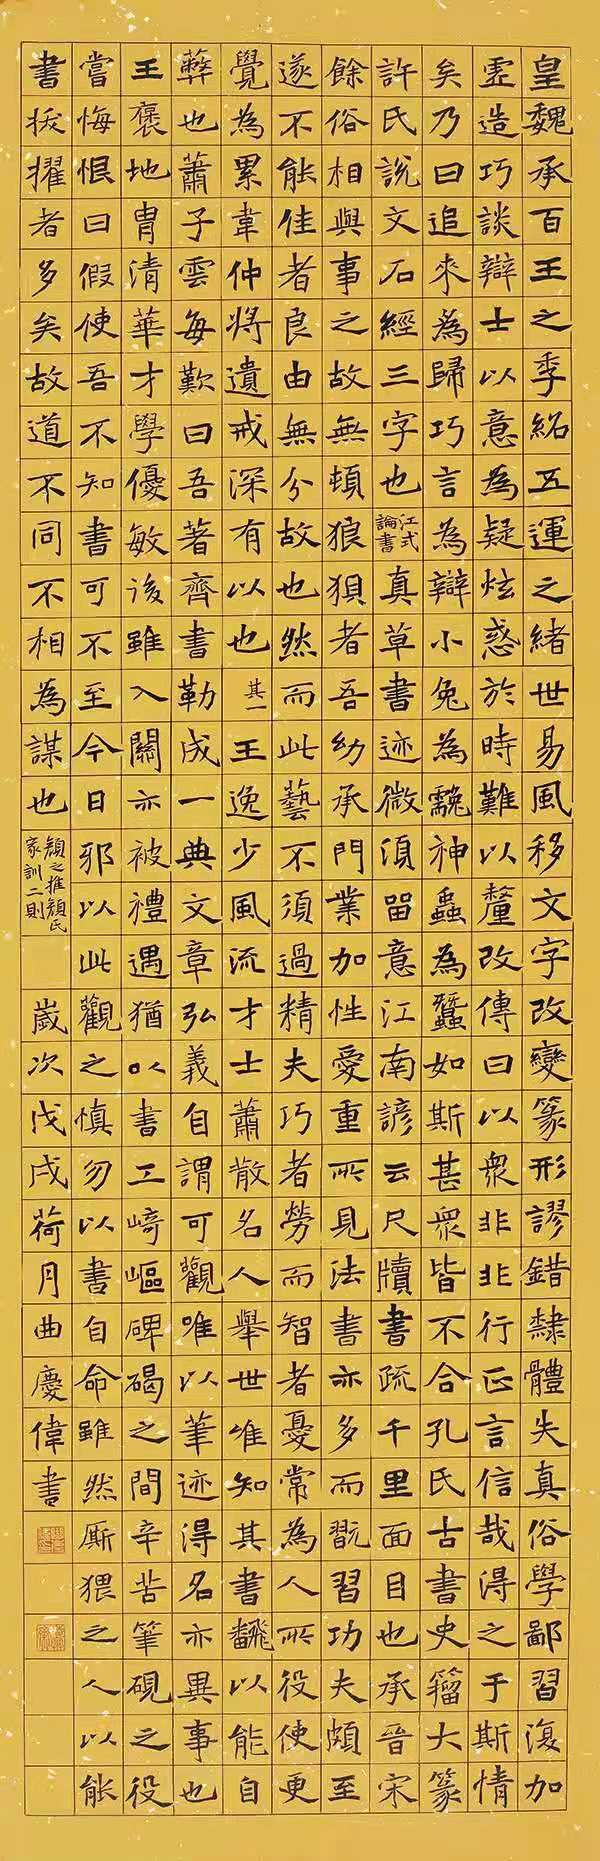 皇魏承百王之季紹五運之緒世易風移文字改變篆形謬錯隸體失真俗學鄙習復加
虛造巧談辯士以意為疑炫惑於時難以釐改傳曰以眾非非行正言信哉得之于斯情
矣乃曰追來為歸巧言為辯小兔為䨲神蟲為蠶如斯甚眾皆不合孔氏古書史籀大篆
許氏說文石經三字也江式論書真草書迹微須留意江南諺云尺牘書疏千里面目也承晉宋
餘俗相與事之故無頓狼狽者吾幼承門業加性愛重所見法書亦多而翫習功夫頗至
遂不能佳者良由無分故也然而此藝不須過精夫巧者勞而智者憂常為人所役使更
覺為累韋仲將遺戒深有以也其一王逸少風流才士蕭散名人舉世惟知其書翻以能自
也蕭子雲每歎曰吾著齊書勒成一典文章弘義自謂可觀唯以筆迹得名亦異事也
王褒地胄清華才學優敏後雖入關亦被禮遇猶以書工崎嶇碑碣之間辛苦筆硯之役
嘗悔恨曰假使吾不知書可不至今日邪以此觀之慎勿以書自命雖然廝猥之人以能
書拔擢者多矣故道不同不相為謀也顏之推顏氏家訓二則歲次戊戌荷月曲慶偉書